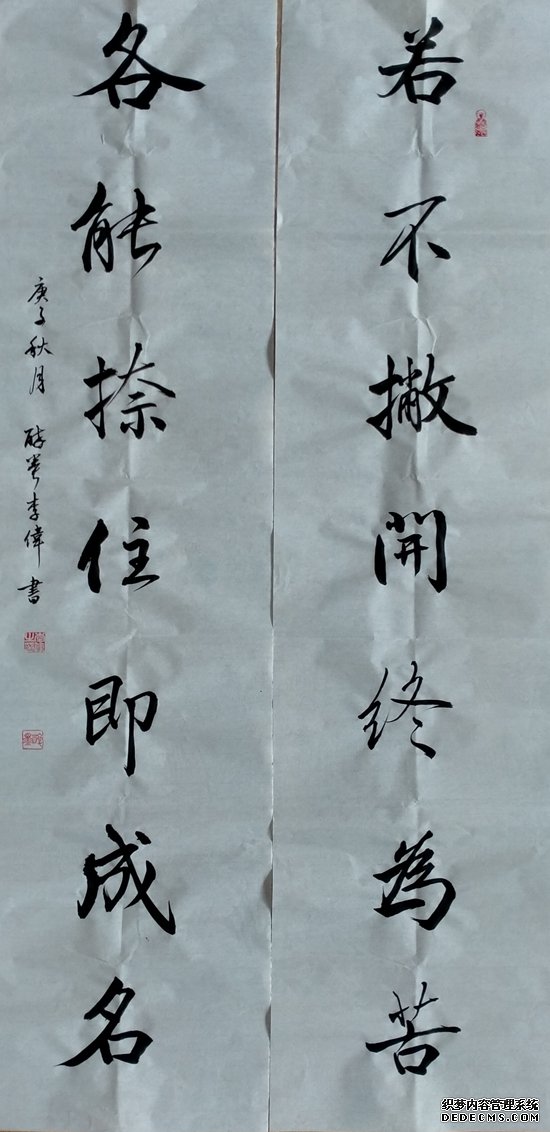 若不撇開终為苦
各能捺住即成名
庚子秋月 醉翁李偉書
织梦内容管理系统
DEDECMS.COM